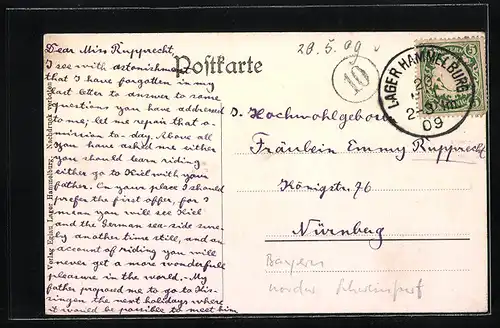 20.5.09
Dear Miss Rupprecht,
I see with astonishment
that I have forgotten in my
last letter to answer to some
questions you have addressed
to me; let me repair that o-
mission to-day. Above all
you have asked me either
you should learn riding
either go to Kiel with your
father. In your place I should
prefer the first offer, for I
mean you will see Kiel
and the German sea-side sure-
ly another time still, and an
account of riding you will
never get a more wonderfull
pleasure in the world. - My
father proposed me to go to Kis-
singen the next holidays where
it would be possible to meet him
Postkarte
10
LAGER HAMMELBURG
09
BAYERN
5
PFENNIG
Hochwohlgeboren
Fräulein Emmy Rupprecht
Königstr. 76
Nürnberg
Bayern
Lager Hammelburg. Nachdruck verboten